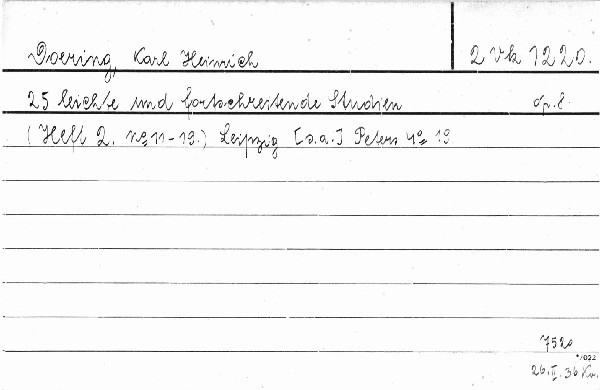 Doering, Karl Heinrich 2 Vk 1220.
25 leichte und fortschreitende Studien op. 8.
(Heft 2. No 11-19.) Leipzig [s.a.] Peters 4o 19
7520
*/022
26.II.36 Kw.